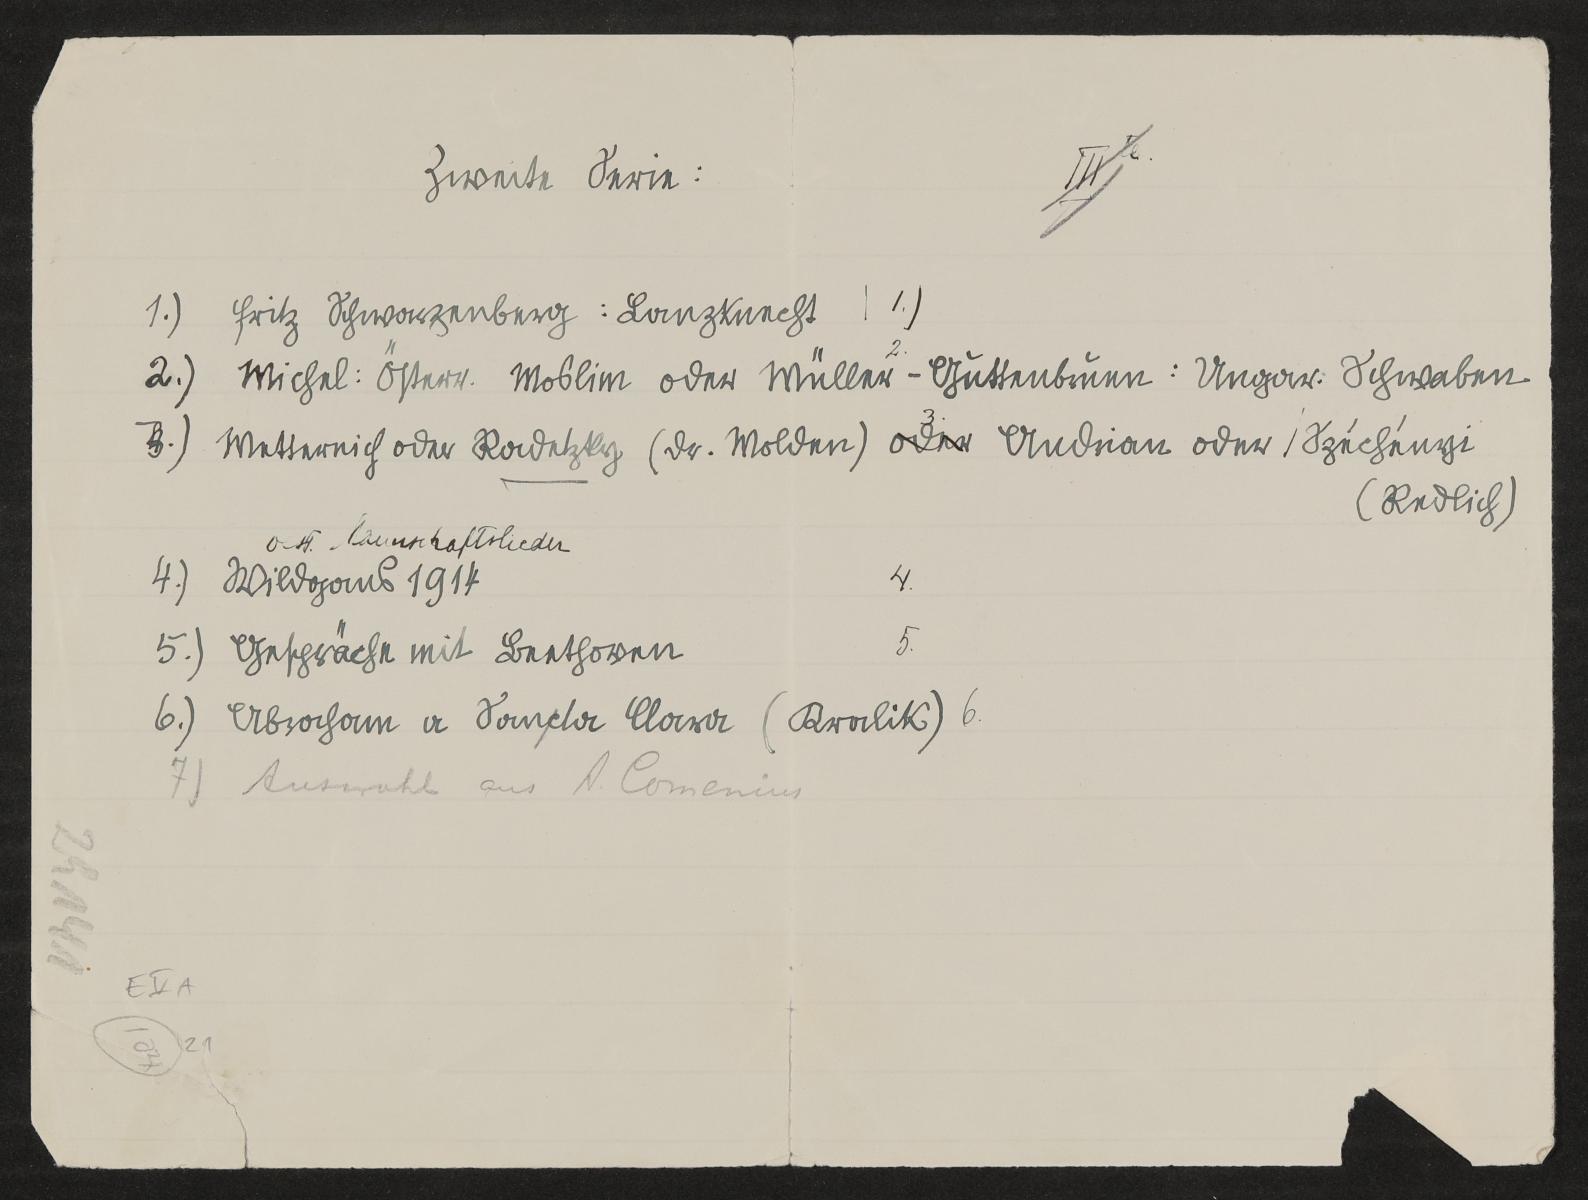 Zweite Serie:
III
1.) Fritz Schwarzenberg: Lanzknecht | 1.)
2.
2.) Michel: Österr. Moslim oder Müller-Guttenbrunn: Ungar. Schwaben
3.
3.) Metternich oder Radetzky (Dr. Molden) oder Andrian oder / Széchényi
(Redlich)
Mannschaftslieder
4.) Wildgans 1914 4.
5.) Gespräche mit Beethoven 5.
6.) Abraham a Sancta Clara (Kralik) 6.
7) Auswahl aus A. Comenius
E V A
21